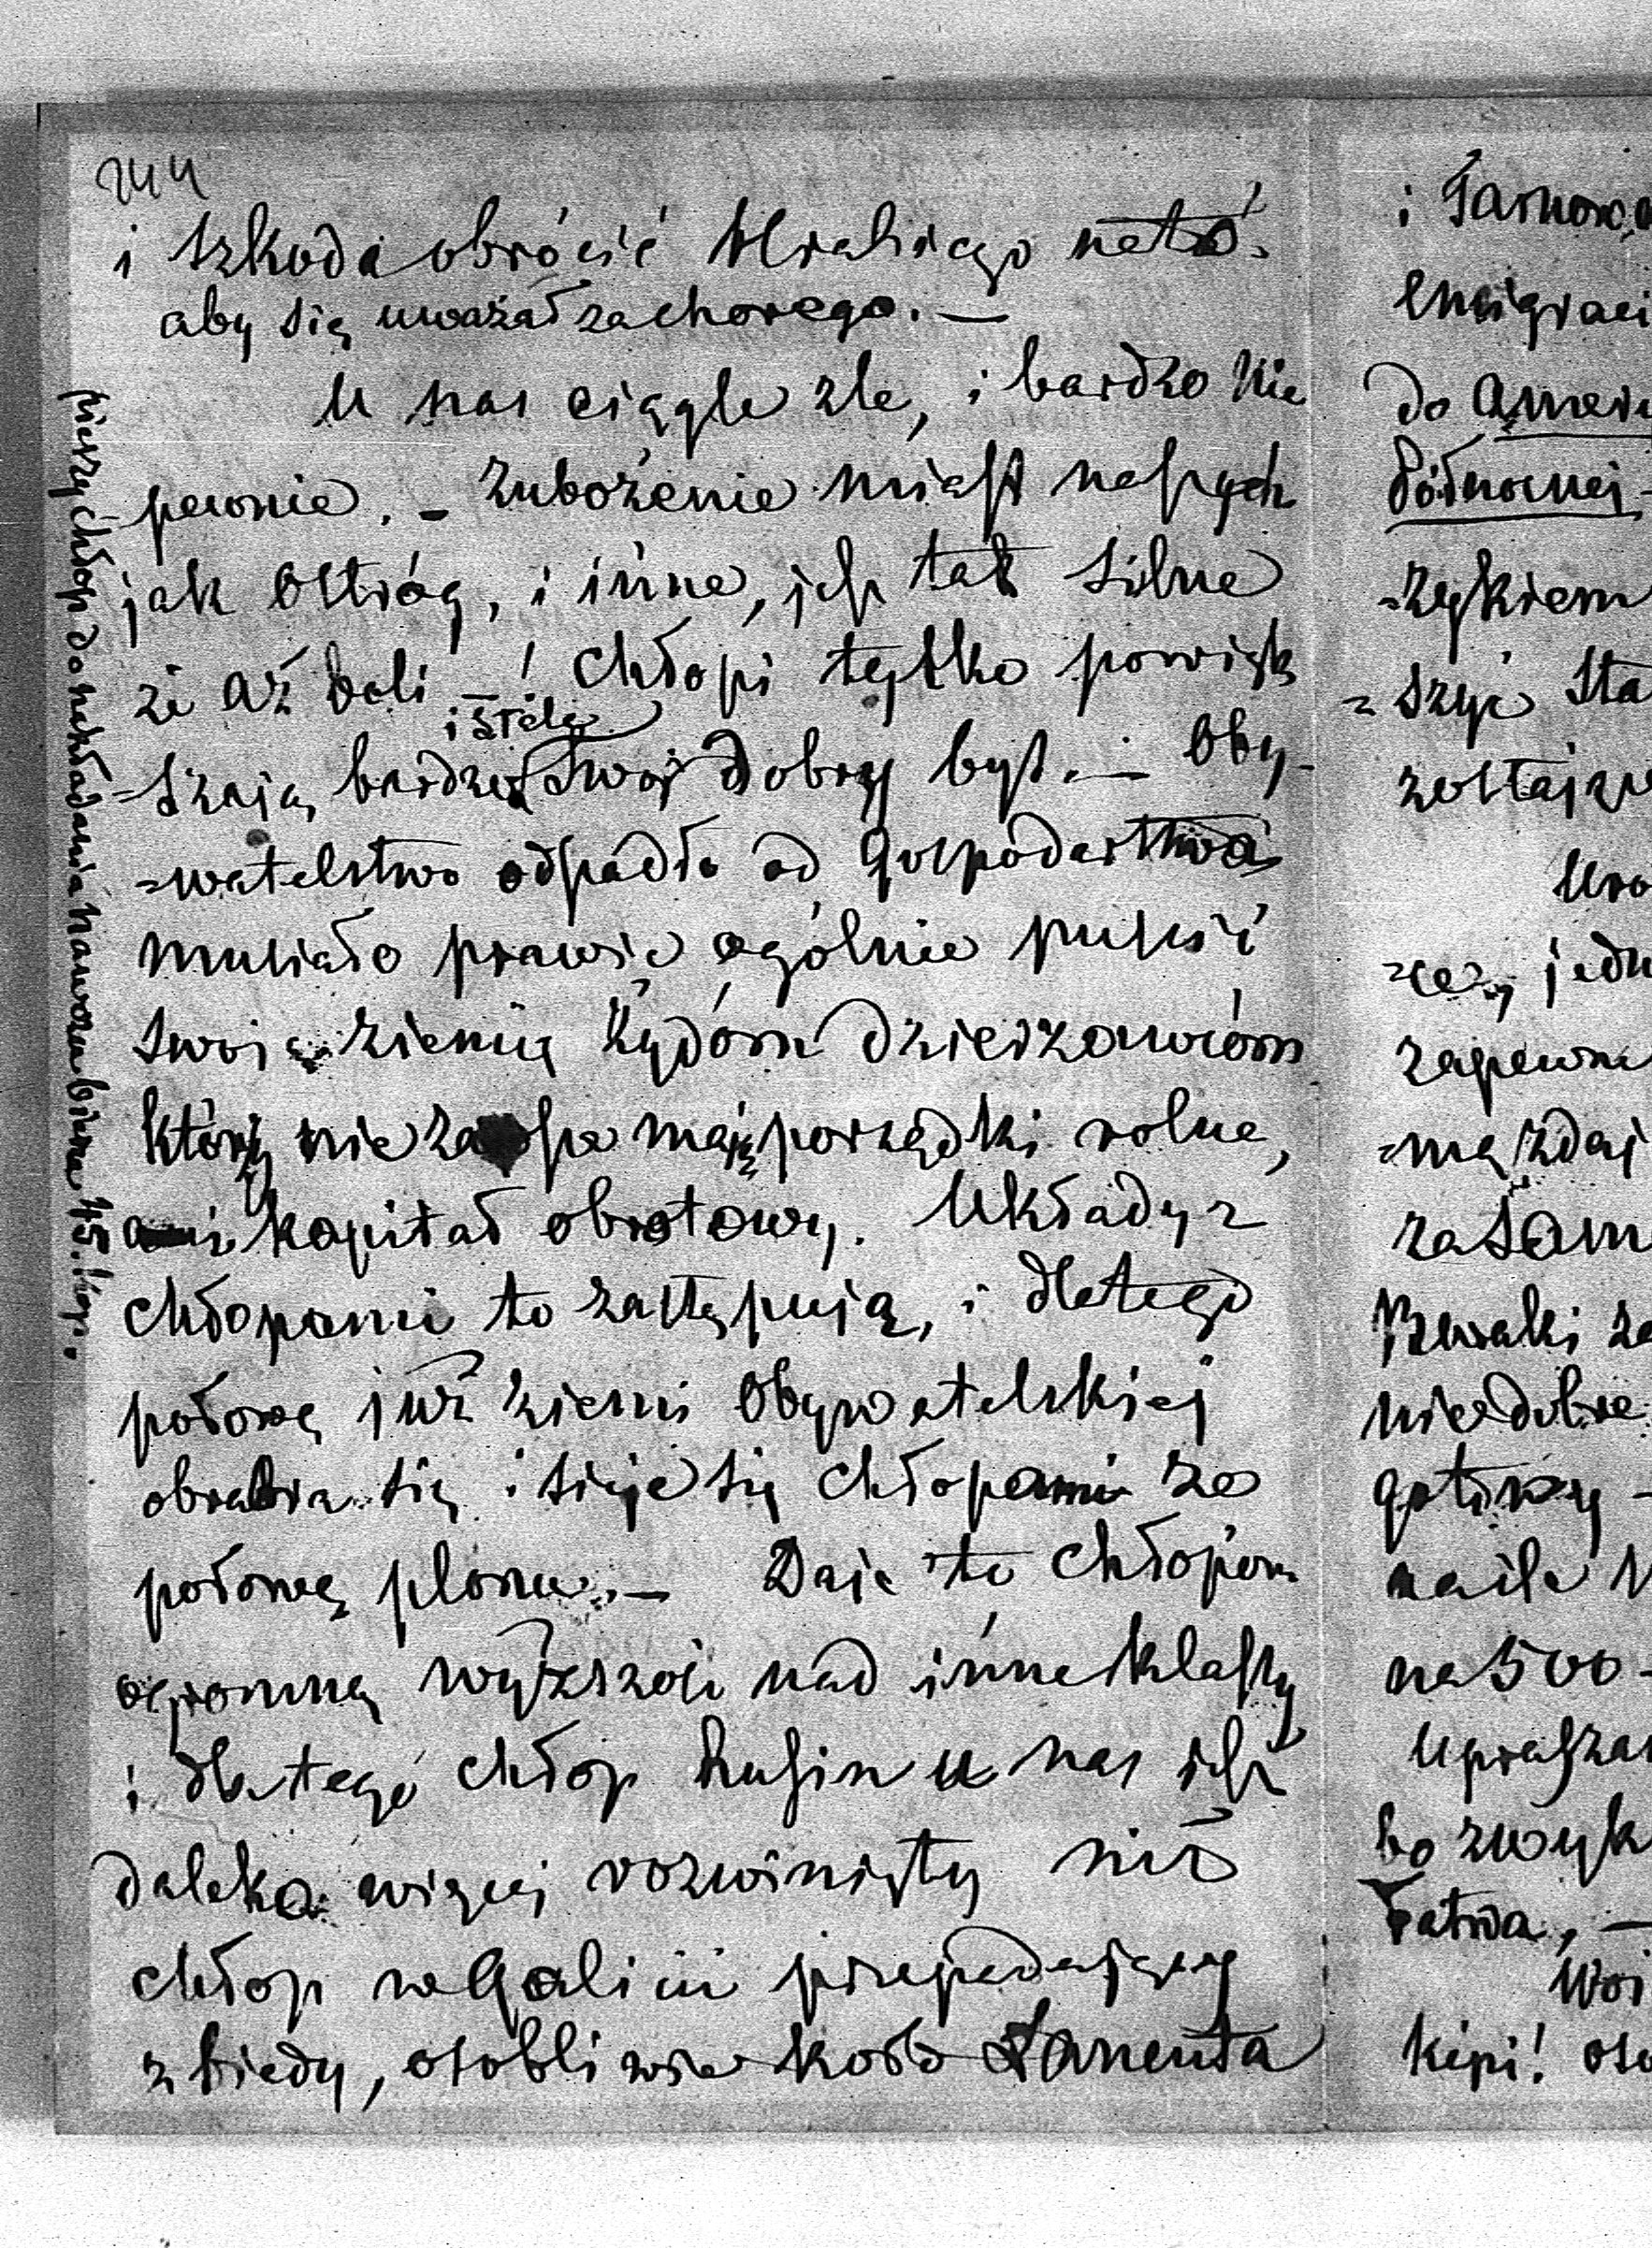 244
i szkoda obrócić Hrabiego na to
aby się uważał za chorego. —
U nas ciągle źle, i bardzo nie
pewnie. – Zubożenie miast naszych
jak Ostróg, i inne, jest tak silne
że aż boli — ! Chłopi tylko powięk
=szają bardzo i stale swój dobry byt. — Oby
=watelstwo odpadło od gospodarstwa
musiało prawie ogólnie puścić
swoją ziemię Żydom dzierzawcom
którzy nie mają porządki rolne,
ani kapitał obrotowy. Układy z
chłopami to zastępują, i dlatego
połowę już ziemi Obywatelskiej
obrabia się i sieje się chłopami za
połowę plonu. — Daje to chłopom
ogromną wyższość nad inne klassy
i dla tego chłop Rusin u nas jest
daleko więcej rozwinięty niż
chłop w Galicii przepadający
z biedy, osobliwie koło Łańcuta
pieszy chłop do nakładania nawozu bierze 45. kop.
i Tarnow
emigraci
do Amery
Północnej
=zykiem
=szyć sta
zostają
=cey, jedn
zapewn
=mą zdaj
za sam
niedobre
gotowy —
na ile
na 500
Upraszam
bo zwyk
Łatwa, —
kepi! oso